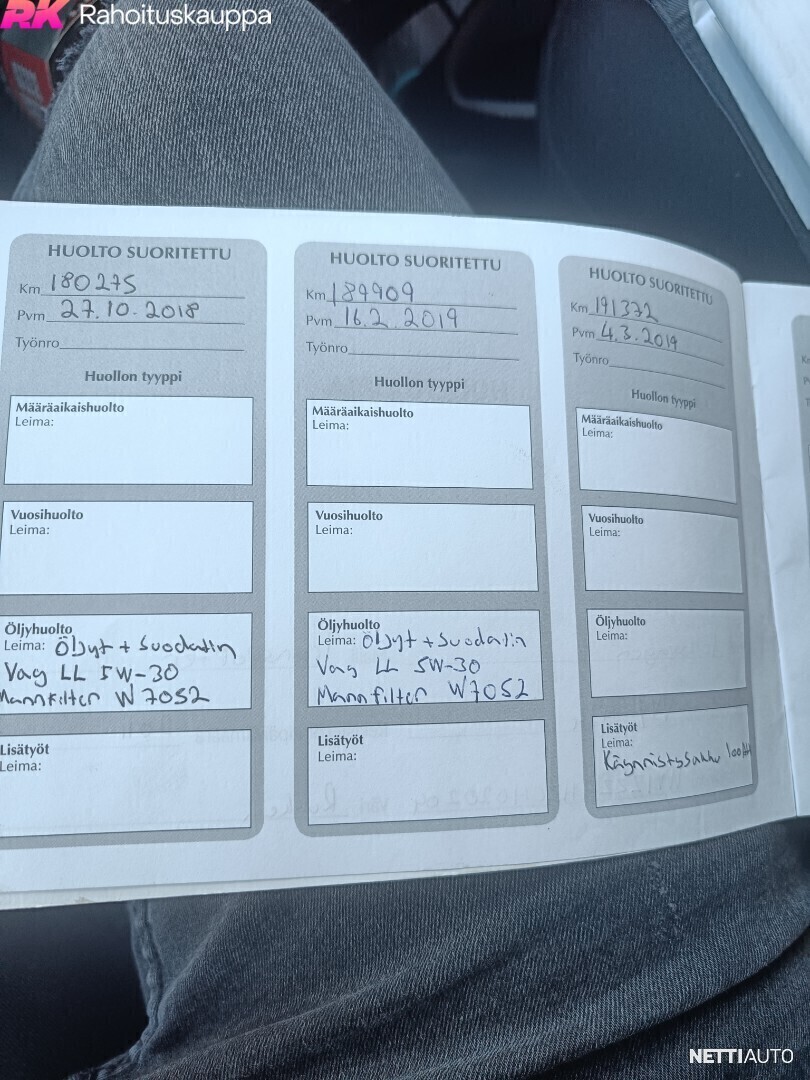 RK Rahoituskauppa
HUOLTO SUORITETTU
Km 180275
Pvm 27.10.2018
Työnro
Huollon tyyppi
Määräaikaishuolto
Leima:
Vuosihuolto
Leima:
Öljyhuolto
Leima: Öljyt + Suodatin
Vag LL 5W-30
Mannfilter W7052
Lisätyöt
Leima:
HUOLTO SUORITETTU
Km 189909
Pvm 16.2.2019
Työnro
Huollon tyyppi
Määräaikaishuolto
Leima:
Vuosihuolto
Leima:
Öljyhuolto
Leima: Öljyt + Suodatin
Vag LL 5W-30
Mannfilter W7052
Lisätyöt
Leima:
HUOLTO SUORITETTU
Km 191372
Pvm 4.3.2019
Työnro
Huollon tyyppi
Määräaikaishuolto
Leima:
Vuosihuolto
Leima:
Öljyhuolto
Leima:
Lisätyöt
Leima:
Käynnistysakku 100Ah
NETTIAUTO